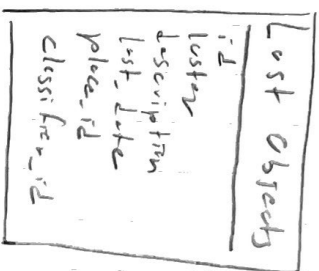 Lost Objects
id
luster
description
lost_date
place_id
classifier_id